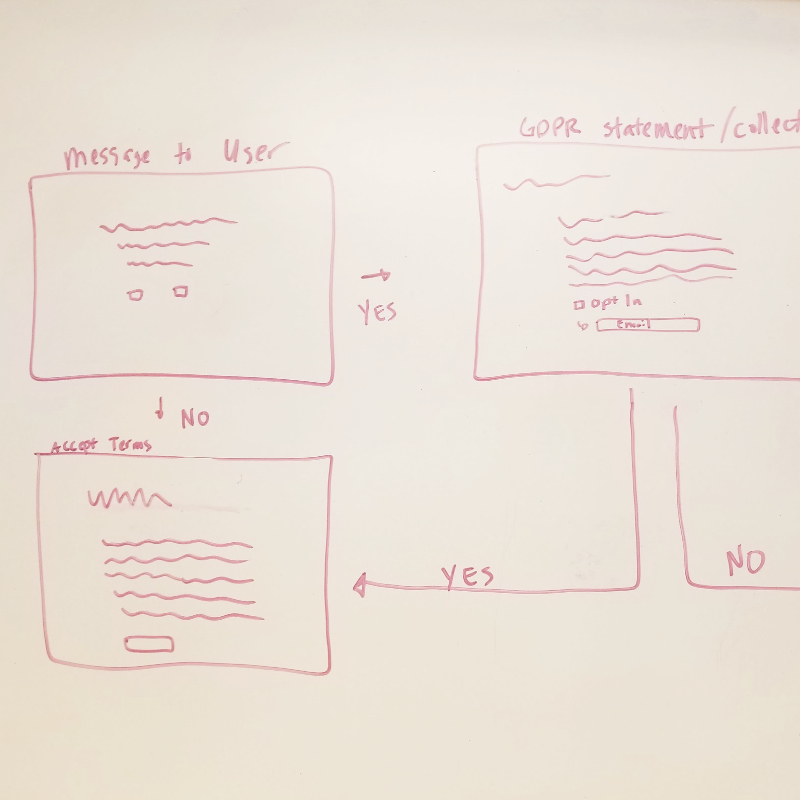 message to User
GDPR statement/collect
YES
opt In
Email
NO
Accept Terms
YES
NO